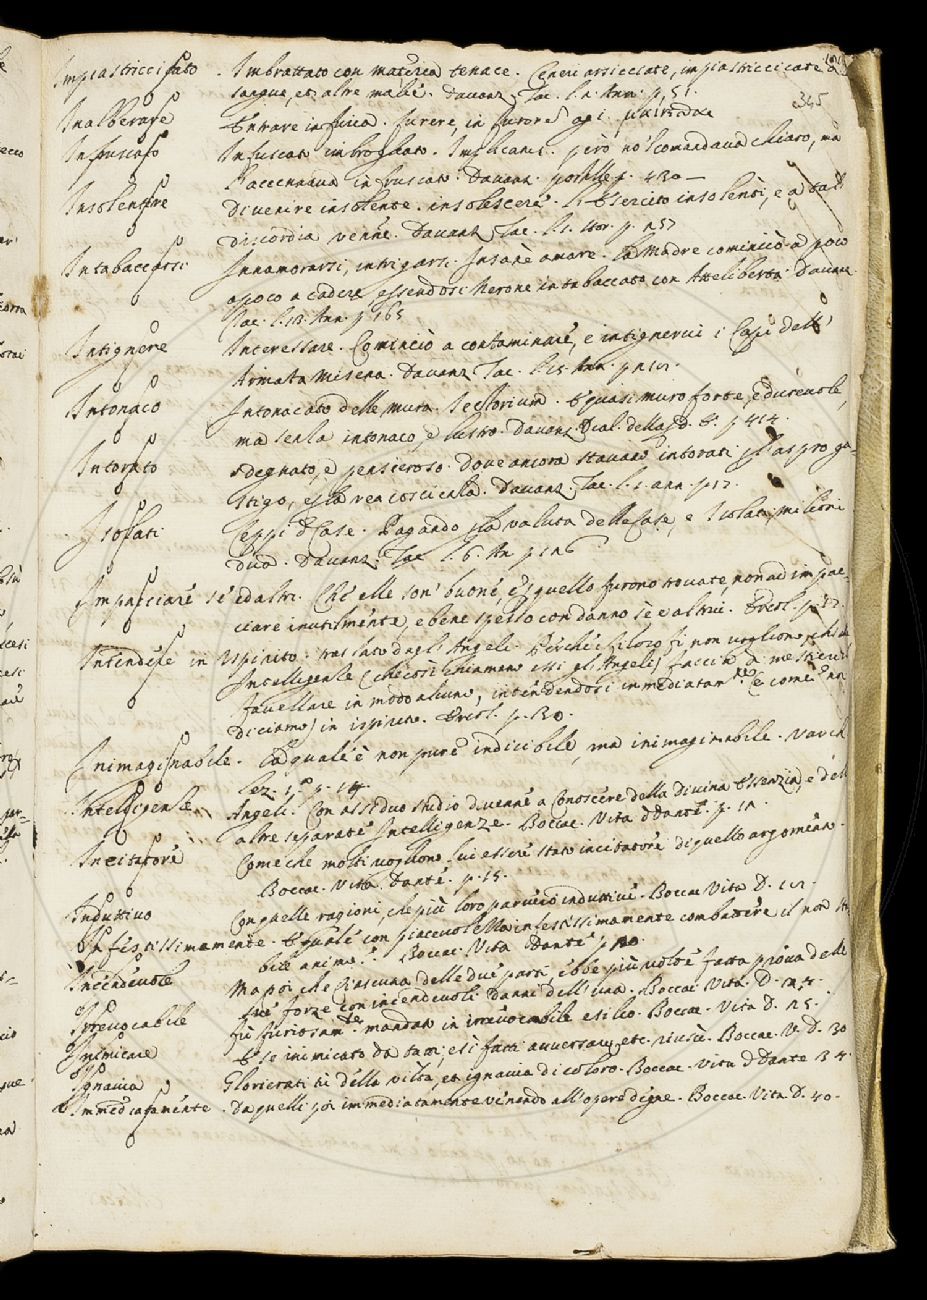 345
Impiastriccisato . Imbrattato con materia tenace . Ceneri arsicciate, impiastriccicate di
sangue, et altre malie . Davanz. Tac. l. 2. Ann. p. 51.
Inalberare Entrare in fuica . furere, in furore agi .
Infuscato Infuscato imbrogliato . Implicans . però nõ comandava chiaro, mà
l'accennava infruscato . Davanz. postille f. 480 —
Insolentire Divenire insolente . insolescere . L'Esercito insolentì, e a tal
discordia venne . Davanz. Tac. l. 1. stor. p. 257
Intabaccarsi Innamorarsi, intrigarsi . Insane amare . La Madre cominciò a poco
a poco a cadere, essendosi Nerone intabaccato con Atteliberta . Davanz.
Tac. l. 13. Ann. p. 165
Intignere Interessare . Cominciò a contaminare, e intignervi i Capi dell'
Armata Misena . Davanz. Tac. l. 15. Ann. p. 212 .
Intonaco Intonacato delle mura . Tectorium . È quasi muro forte, e durevole,
ma senza intonaco, e lustro . Davanz. Dial. della p. E. p. 414 .
Intorato sdegnato, e pensieroso . Dove ancora stavano intorati p. l'aspro ga-
stigo, e p. la rea coscienza . Davanz. Tac. l. 1. ann. p. 17 .
Isolati Ceppi d. Case . Pagando p. la valuta delle Case, e Isolati, milioni
duo . Davanz. Tac. l. 6. An. p. 126
Impacciare sè ed altri . Chè elle son buone, e p. quello furono trovate, non ad impac-
ciare inutilmente, e bene spesso con danno sè e altrui . Ercol. p.
Intendere in ispirito . traslato dagli Angeli . Perchè i filosofi non vogliono, chè
Intelligenze (che così chiamano essi gli Angeli) faccia di mestiere il
favellare in modo alcuno, intendendosi immediatam.te (e come noi
diciamo) in ispirito . Ercol. p. 30.
Inimaginabile . La quale è non pure indicibile, ma inimaginabile . Varch.
Lez. 1.a p. 14.
Intelligenze Angeli . Con assiduo studio divenne a conoscere della divina Essenzia, e dell'
altre separate Intelligenze . Boccac. Vita d. Dante . p. 12 .
Incitatore Come che molti vogliono lui essere stato incitatore di quello argomento .
Boccac. Vita Dante . p. 15.
Induttivo Con quelle ragioni, che più loro parevano induttive . Boccac. Vita D.
Infestissimamente . E quale con piacevolezza infestissimamente combattere il non sta-
bile animo . Boccac. Vita Dante p. 20.
Incendevole Ma poi che ciascuna delle due parti ebbe più volte fatta prova delle
sue forze con incendevoli danni dell'una . Boccac. Vita D. 24.
Irrevocabile fù furiosam.te mandato in irrevocabile esilio . Boccac. Vita D. 25.
Inimicare E se inimicato da tanti, e sì fatti avversari, etc. riuscì . Boccac. V. D. 30
Ignavia Glorierati tù della viltà, et ignavia di coloro . Boccac. Vita d. Dante 34.
Immediatamente . Da quelli poi immediatamente venendo all'opere digne . Boccac. Vita D. 40.